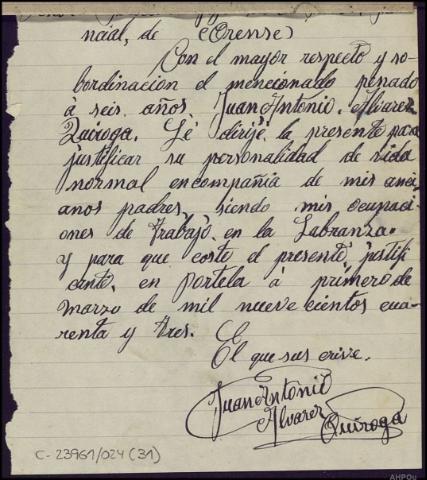 ncial, de (Orense)
Con el mayor respecto y so-
bordinacion el mencionado penado
á seis años, Juan Antonio, Alvarez
Quiroga. Lé dirijé, la presente para
justificar su personalidad de vida
normal en compañia de mis anci
anos padres, siendo mis ocupaci-
ones de trabajo, en la Labranza.
y para que coste el presente, justifi
cante, en Portela á primero de
marzo de mil nueve cientos cua-
renta y tres.
El que sus crive.
Juan Antonio
Alvarez Quiroga
C-23961/024 (31)
AHPOu